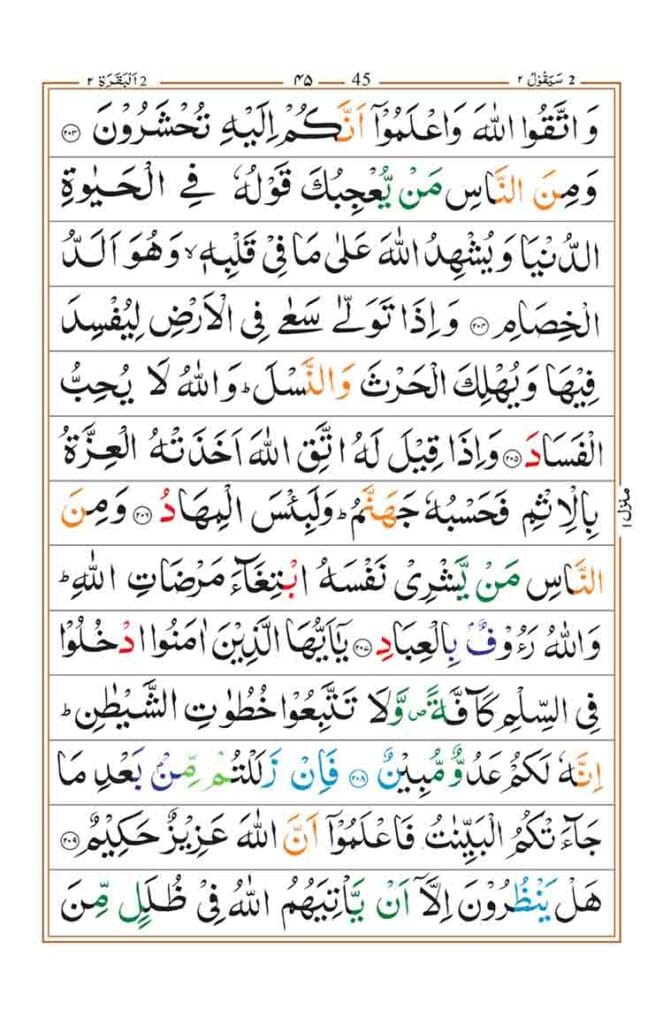 2 سَيَقُوْلُ ٢ ۴۵ 45 2 اَلْبَقَرَة ٢
وَ اتَّقُوا اللهَ وَاعْلَمُوْۤا اَنَّكُمْ اِلَيْهِ تُحْشَرُوْنَ ۝۲۰۳
وَمِنَ النَّاسِ مَنْ يُّعْجِبُكَ قَوْلُهٗ فِي الْحَيٰوةِ
الدُّنْيَا وَيُشْهِدُ اللهَ عَلٰى مَا فِيْ قَلْبِهٖ ۙ وَهُوَ اَلَدُّ
الْخِصَامِ ۝۲۰۴ وَاِذَا تَوَلّٰى سَعٰى فِي الْاَرْضِ لِيُفْسِدَ
فِيْهَا وَيُهْلِكَ الْحَرْثَ وَالنَّسْلَ ؕ وَاللهُ لَا يُحِبُّ
الْفَسَادَ ۝۲۰۵ وَاِذَا قِيْلَ لَهُ اتَّقِ اللهَ اَخَذَتْهُ الْعِزَّةُ
بِالْاِثْمِ فَحَسْبُهٗ جَهَنَّمُ ؕ وَلَبِئْسَ الْمِهَادُ ۝۲۰۶ وَمِنَ
النَّاسِ مَنْ يَّشْرِيْ نَفْسَهُ ابْتِغَآءَ مَرْضَاتِ اللهِ ؕ
وَاللهُ رَءُوْفٌۢ بِالْعِبَادِ ۝۲۰۷ يٰۤاَيُّهَا الَّذِيْنَ اٰمَنُوا ادْخُلُوْا
فِي السِّلْمِ كَآفَّةً ۪ وَّلَا تَتَّبِعُوْا خُطُوٰتِ الشَّيْطٰنِ ؕ
اِنَّهٗ لَكُمْ عَدُوٌّ مُّبِيْنٌ ۝۲۰۸ فَاِنْ زَلَلْتُمْ مِّنْۢ بَعْدِ مَا
جَآءَتْكُمُ الْبَيِّنٰتُ فَاعْلَمُوْۤا اَنَّ اللهَ عَزِيْزٌ حَكِيْمٌ ۝۲۰۹
هَلْ يَنْظُرُوْنَ اِلَّاۤ اَنْ يَّاْتِيَهُمُ اللهُ فِيْ ظُلَلٍ مِّنَ
منزل ۱